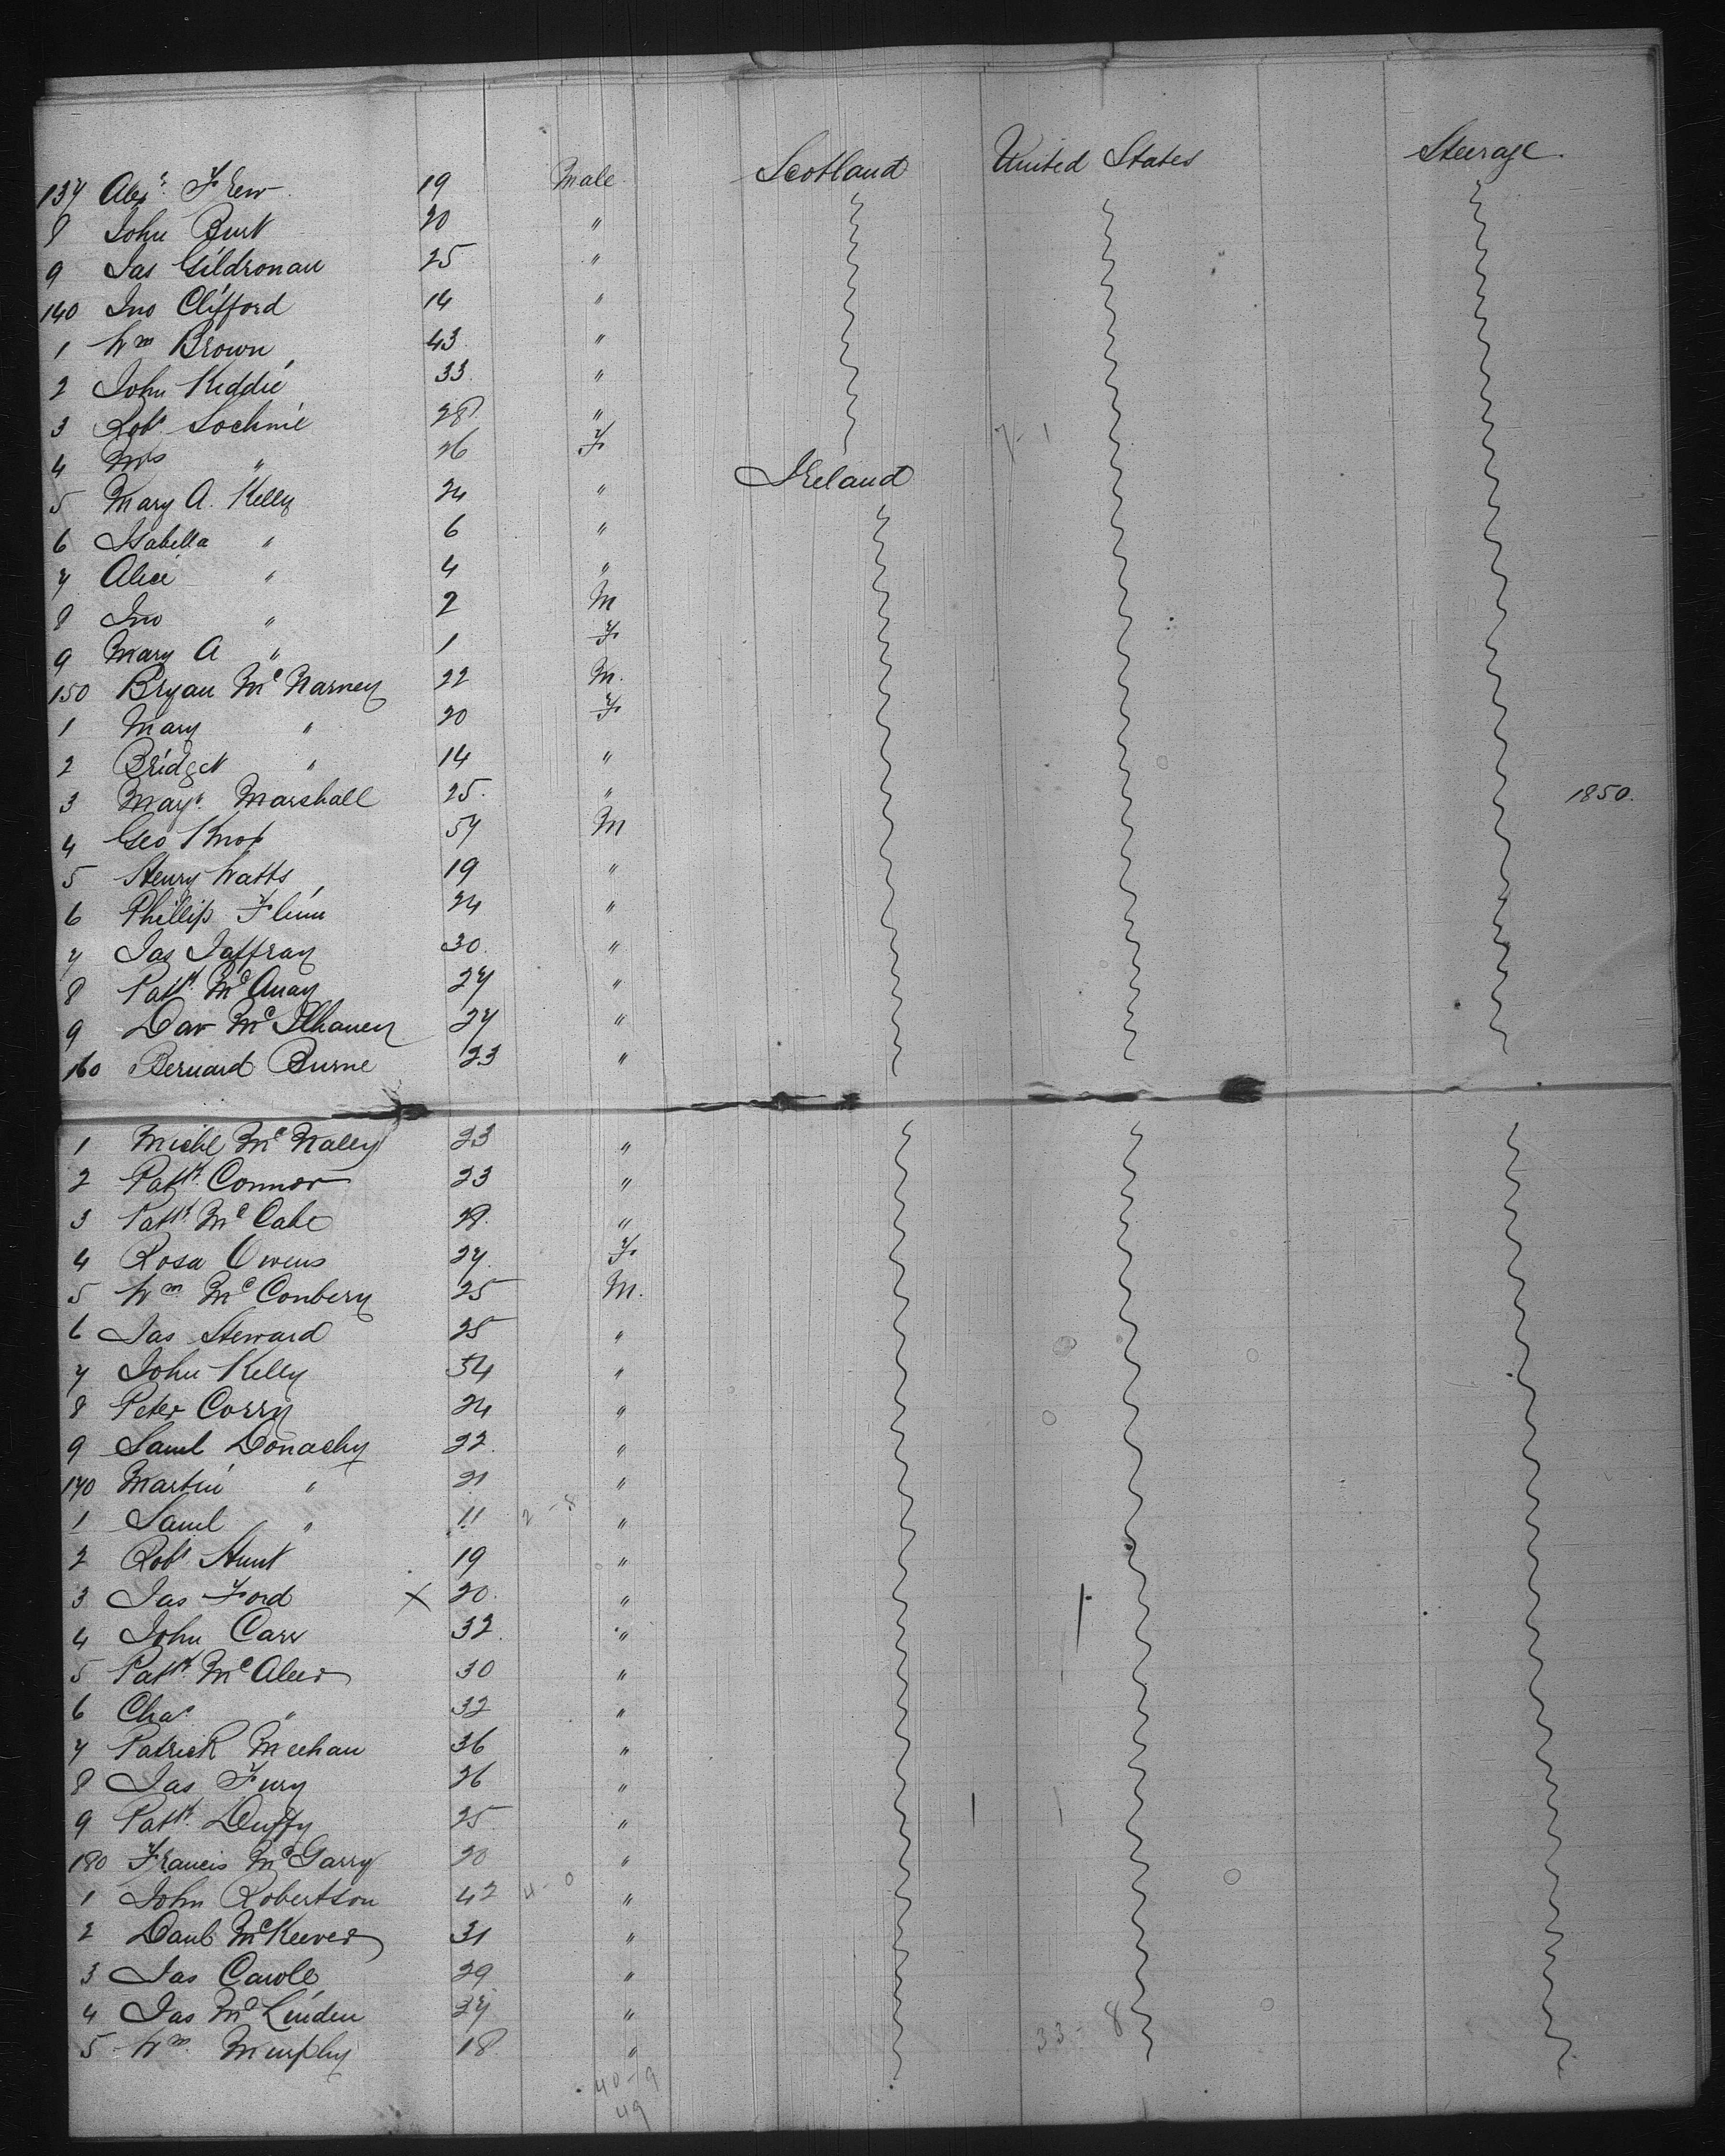 137 Alexr Frew 19 Male Scotland United States Steerage
8 John Burt 20 "
9 Jas Gildronan 25 "
140 Jno Clifford 14 "
1 Wm Brown 43 "
2 John Kiddie 33 "
3 Robt Lochnie 28 "
4 Mrs " 26 F 7-1
5 Mary A. Kelly 24 " Ireland
6 Isabella " 6 "
7 Alice " 4 "
8 Jno " 2 M
9 Mary A " 1 F
150 Bryan McNarney 22 M.
1 Mary " 20 F
2 Bridget " 14 "
3 Magt. Marshall 25. " 1850.
4 Geo Knox 57 M
5 Henry Watts 19 "
6 Phillip Flinn 24 "
7 Jas Jaffray 30 "
8 Patk. McAuay 27 "
9 Dav McIlhaney 27 "
160 Bernard Burne 23 "
1 Michl McNally 23 "
2 Patk. Connor 23 "
3 Patk McCabe "
4 Rosa Owens 27 F
5 Wm McConbery 25 M.
6 Jas Steward 25 "
7 John Kelly 54 "
8 Peter Corry 24 "
9 Saml Donachy 22 "
170 Martin " 21 "
1 Saml " 11 2-8 "
2 Robt Hunt 19 "
3 Jas Ford X 20 "
4 John Carr 32 "
5 Patk McAleer 30 "
6 Chas " 32 "
7 Patrick Meehan 36 "
8 Jas Fury 26 "
9 Patk. Duffy 25 "
180 Francis McGarry 20 "
1 John Robertson 42 4-0 "
2 Danl McKeever 31 "
3 Jas Carole 29 "
4 Jas McLinden 27 " 33-8
5 Wm. Murphy 18 "
40-9
49